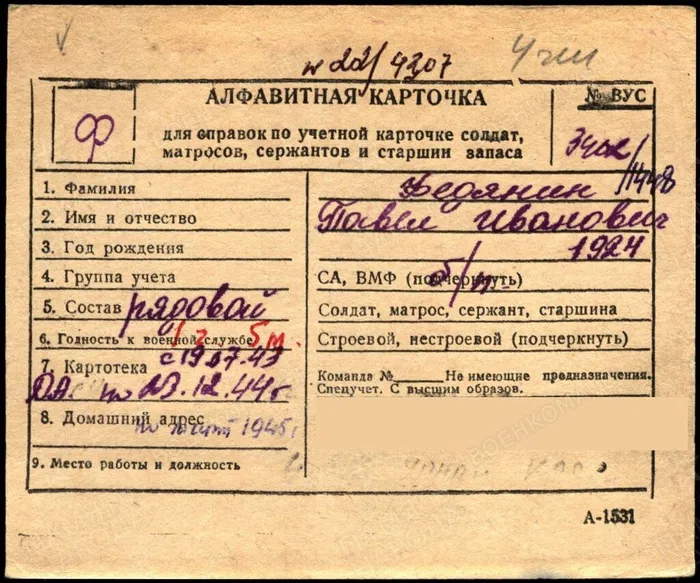 № 22/4307
АЛФАВИТНАЯ КАРТОЧКА
№ ВУС
Ф
для справок по учетной карточке солдат,
матросов, сержантов и старшин запаса
1. Фамилия Федянин
2. Имя и отчество Павел Иванович
3. Год рождения 1924
4. Группа учета СА, ВМФ (подчеркнуть)
5. Состав рядовой Солдат, матрос, сержант, старшина
6. Годность к военной службе Строевой, нестроевой (подчеркнуть)
7. Картотека с 19.07.43 Команда № Не имеющие предназначения.
Спецучет. С высшим образов.
по 23.12.44г
8. Домашний адрес
1945
9. Место работы и должность
А-1531